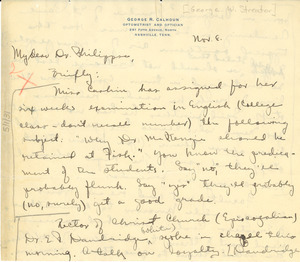 [George N. Streator]
GEORGE R. CALHOUN
OPTOMETRIST AND OPTICIAN
NASHVILLE, TENN.
Nov 8.
My dear Dr. Phillips,
Briefly:
Miss Cashin has assigned for her
six weeks examination in English (College
class - don't recall number) the following
subject: "Why Dr. McKenzie should be
retained at Fisk." You know the predica-
ment of the students. Say "no," they'll
probably flunk. Say "yes" they'll probably
(no, surely) get a good grade.
Rector of Christ Church (Episcopalian)
(white)
Dr. E. P. Dandridge, spoke in chapel this
morning. A talk on loyalty. [Dandridge